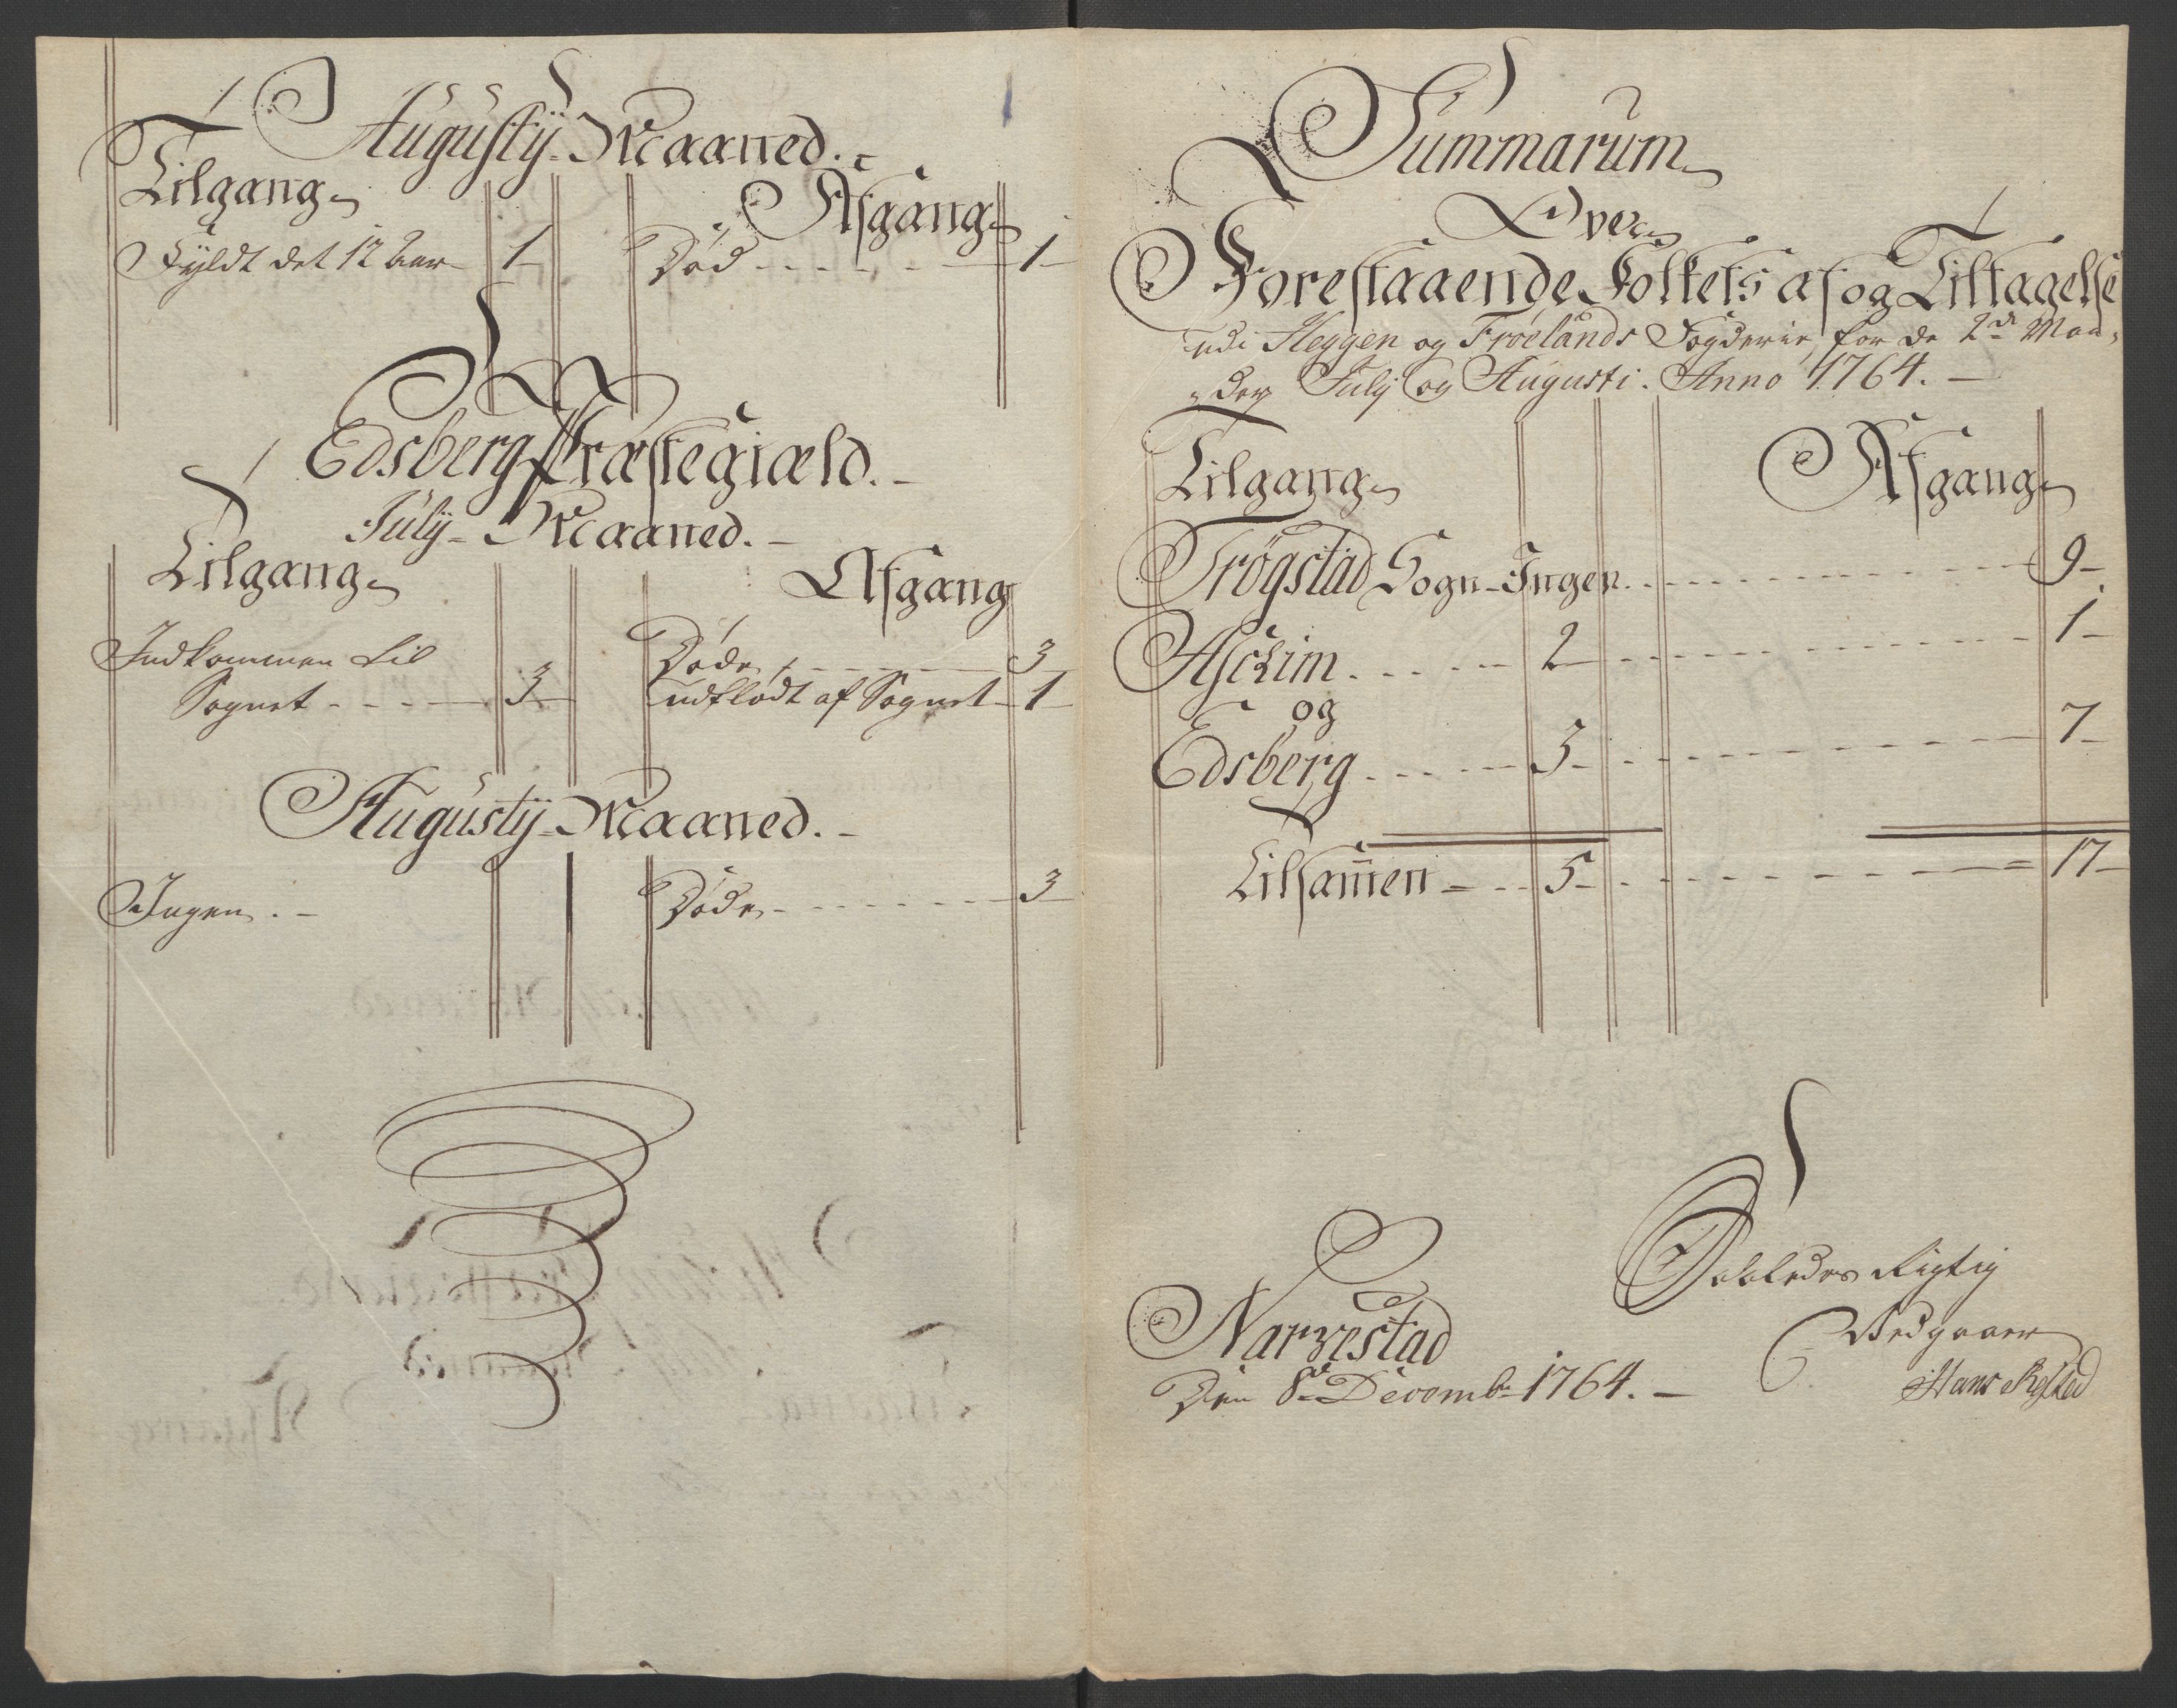 Augustÿ Maaned.
Tilgang
Afgang
Fyldt det 12 Aar 1
Død 1
Edsberg Præstegiæld.
Julÿ Maaned.
Tilgang
Afgang
Indkommen til
Sognet 3
Døde 3
udflødt af Sognet 1
Augustÿ Maaned.
Ingen.
Døde 3
Summarum
Over
Forestaaende Folkets af og Tiltagelse
udi Heggen og Frølands Fogderie, for de 2de Maa-
der July og Augusti. Anno 1764.
Tilgang
Afgang
Trøgstad Sogn Ingen. 9
Aschim 2 1
og
Edsberg 3 7
Tilsam̄en 5 17
Narvestad
Den 8de Decemb: 1764.
Saaledes Rigtig
Vedgaaer
Hans